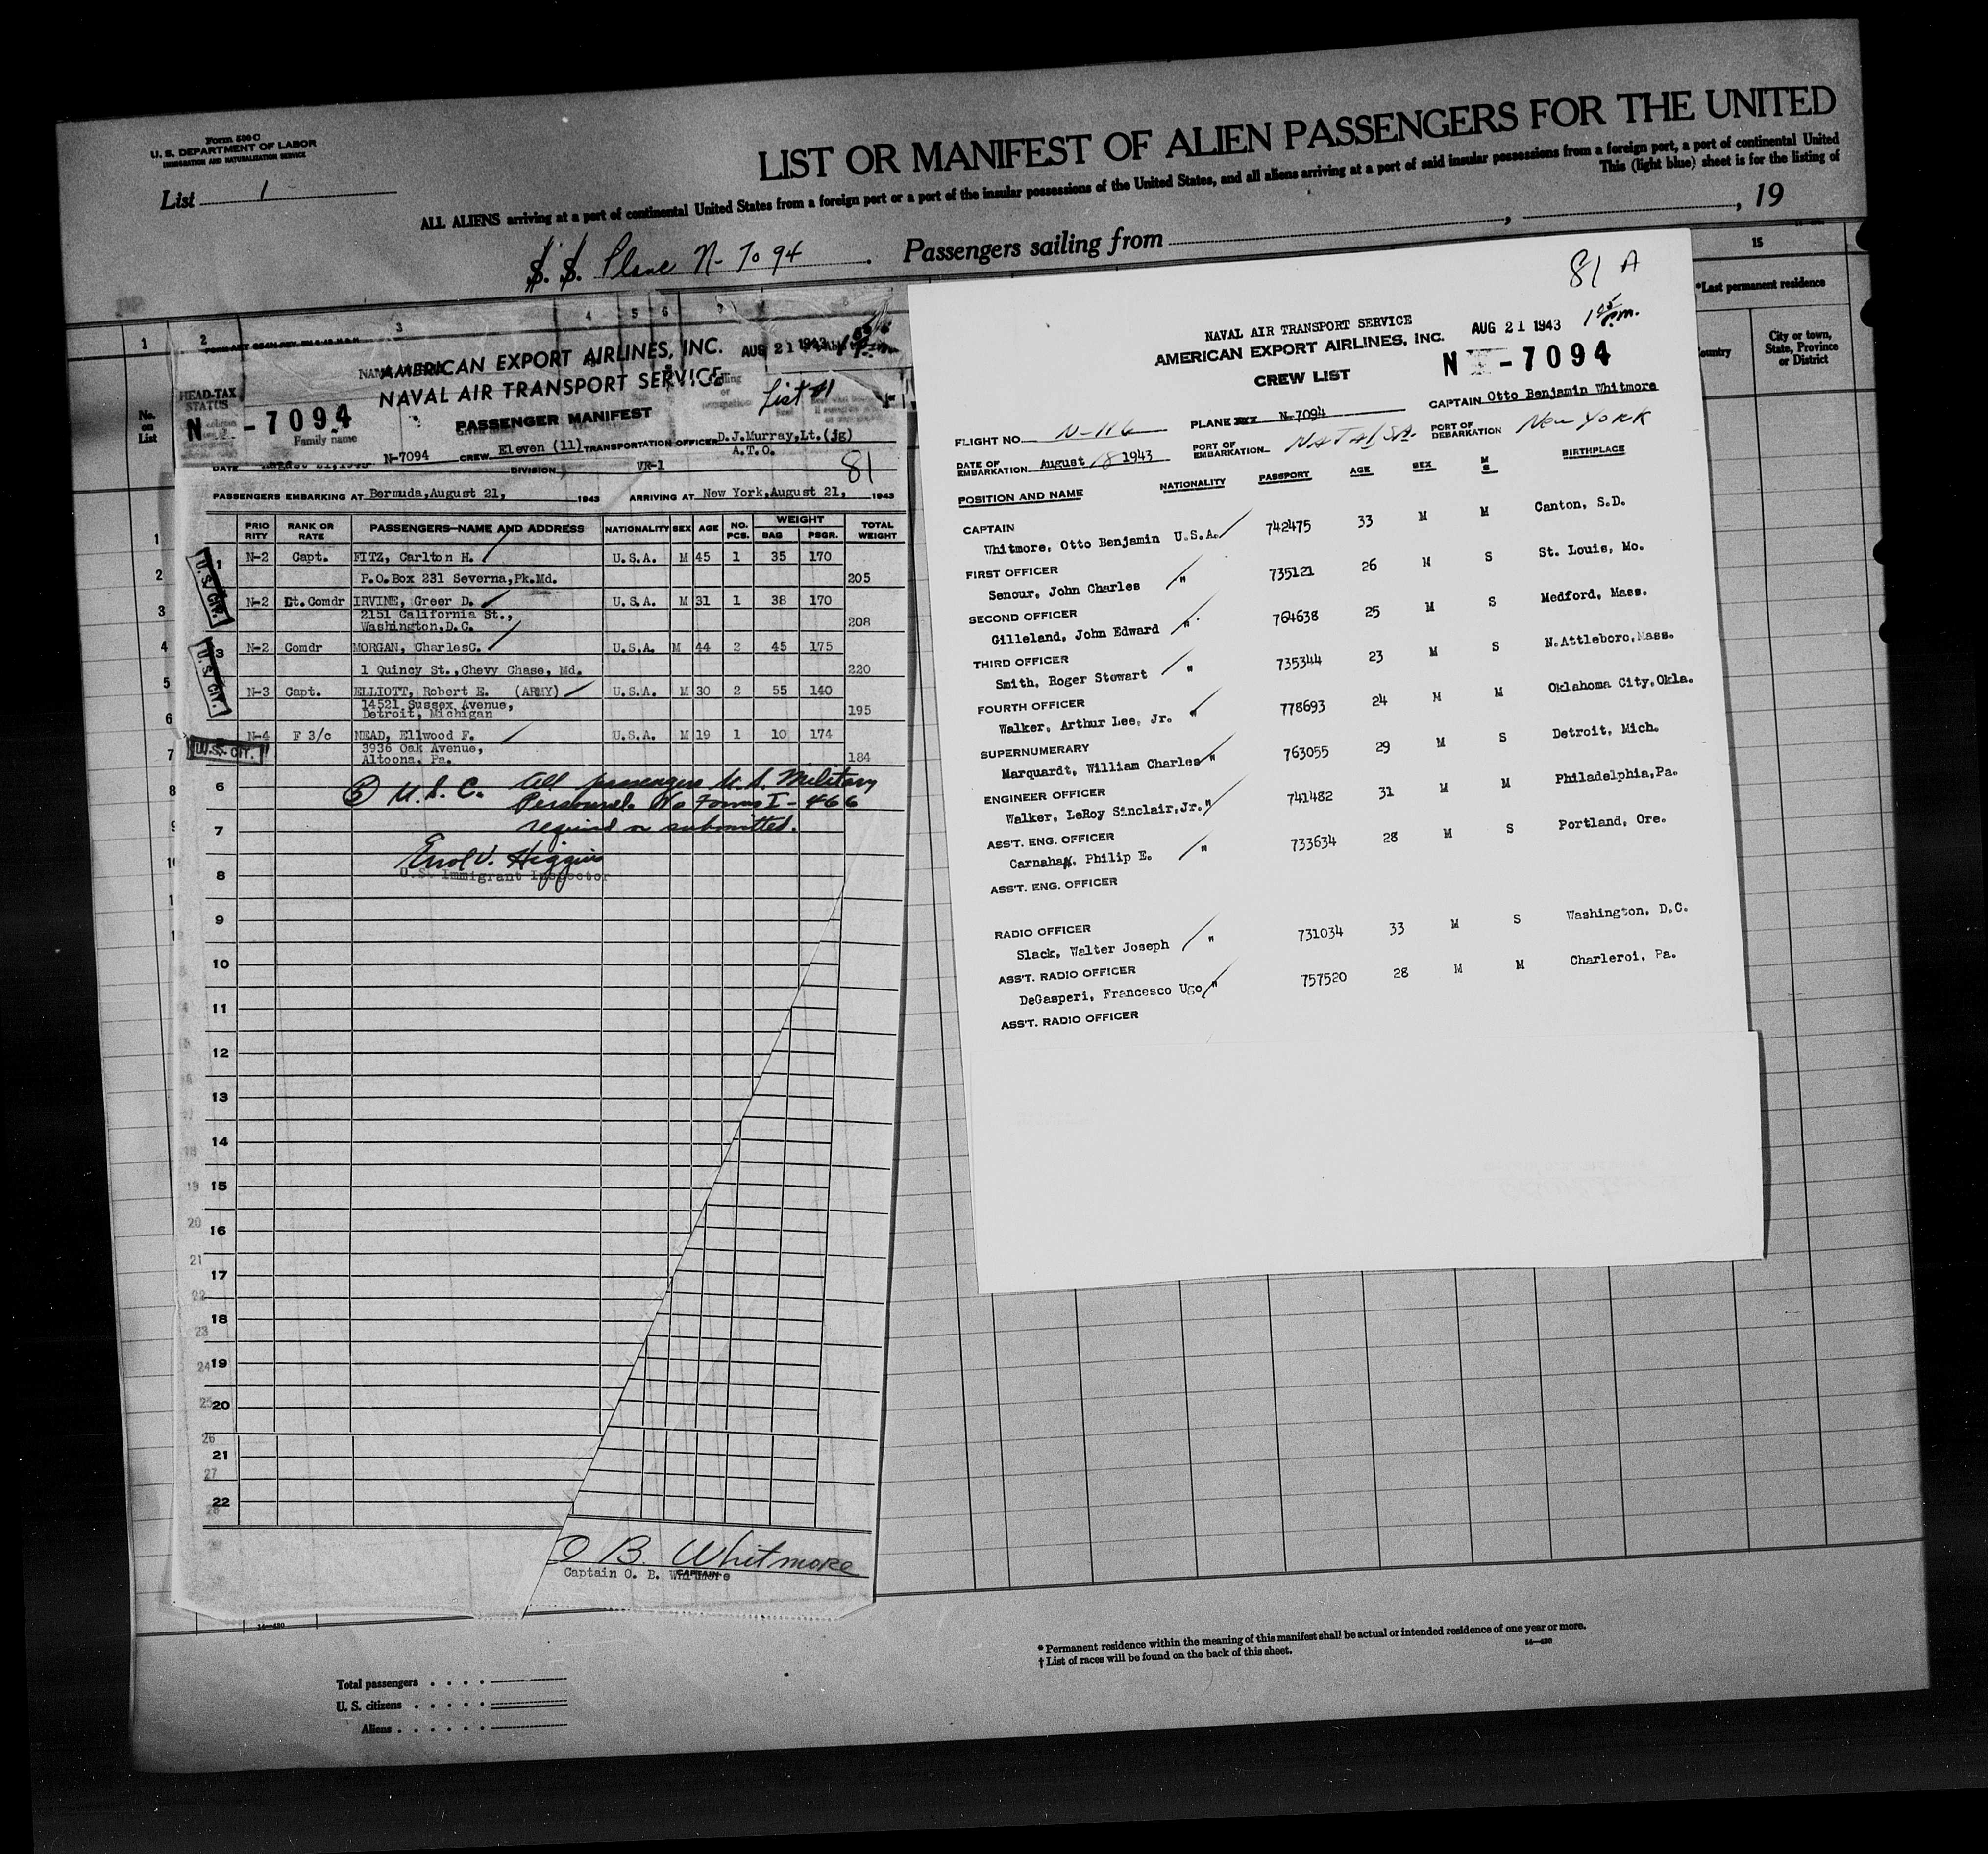 Form 500-C
U. S. DEPARTMENT OF LABOR
IMMIGRATION AND NATURALIZATION SERVICE
List 1
LIST OR MANIFEST OF ALIEN PASSENGERS FOR THE UNITED
ALL ALIENS arriving at a port of continental United States from a foreign port or a port of the insular possessions of the United States, and all aliens arriving at a port of said insular possessions from a foreign port, a port of continental United
This (light blue) sheet is for the listing of
S. S. Plane N-7094 . Passengers sailing from , , 19
1 2 3 4 5 6 7
No. on List
HEAD-TAX STATUS
Family name
AMERICAN EXPORT AIRLINES, INC. AUG 21 1943
NAVAL AIR TRANSPORT SERVICE
List #1
N -7094
PASSENGER MANIFEST
N-7094 CREW Eleven (11) TRANSPORTATION OFFICER D.J.Murray,Lt.(jg)
A.T.O.
DATE August 21,1943 DIVISION VR-1 81
PASSENGERS EMBARKING AT Bermuda,August 21, 1943 ARRIVING AT New York,August 21, 1943
PRIORITY RANK OR RATE PASSENGERS—NAME AND ADDRESS NATIONALITY SEX AGE NO. PCS. WEIGHT BAG PSGR. TOTAL WEIGHT
1 N-2 Capt. FITZ, Carlton H. U.S.A. M 45 1 35 170
P.O.Box 231 Severna,Pk.Md. 205
N-2 Lt.Comdr IRVINE, Greer D. U.S.A. M 31 1 38 170
2151 California St.,
Washington,D.C. 208
3 N-2 Comdr MORGAN, CharlesC. U.S.A. M 44 2 45 175
1 Quincy St.,Chevy Chase, Md. 220
N-3 Capt. ELLIOTT, Robert E. (ARMY) U.S.A. M 30 2 55 140
14521 Sussex Avenue,
Detroit, Michigan 195
N-4 F 3/c NEAD, Ellwood F. U.S.A. M 19 1 10 174
3936 Oak Avenue,
Altoona, Pa. 184
U.S. CIT.
U.S. CIT.
U.S. CIT.
6 (5) U.S.C. All passengers U.S. Military
Personnel. No Forms I-466
7 required or submitted.
Errol V. Higgins
8 U.S. Immigrant Inspector
9
10
11
12
13
14
15
16
17
18
19
20
21
22
O B. Whitmore
Captain O. B. Whitmore
CAPTAIN
81 A
NAVAL AIR TRANSPORT SERVICE AUG 21 1943 1 05 pm.
AMERICAN EXPORT AIRLINES, INC.
CREW LIST N -7094
FLIGHT NO. N-116 PLANE N-7094 CAPTAIN Otto Benjamin Whitmore
DATE OF EMBARKATION August 18 1943 PORT OF EMBARKATION NATAL, SA. PORT OF DEBARKATION New YORK
POSITION AND NAME NATIONALITY PASSPORT AGE SEX M S BIRTHPLACE
CAPTAIN
Whitmore, Otto Benjamin U.S.A. 742475 33 M M Canton, S.D.
FIRST OFFICER
Senour, John Charles " 735121 26 M S St. Louis, Mo.
SECOND OFFICER
Gilleland, John Edward " 764638 25 M S Medford, Mass.
THIRD OFFICER
Smith, Roger Stewart " 735344 23 M S N.Attleboro,Mass.
FOURTH OFFICER
Walker, Arthur Lee, Jr. " 778693 24 M M Oklahoma City,Okla.
SUPERNUMERARY
Marquardt, William Charles " 763055 29 M S Detroit, Mich.
ENGINEER OFFICER
Walker, LeRoy Sinclair,Jr. " 741482 31 M M Philadelphia,Pa.
ASS'T. ENG. OFFICER
Carnahan, Philip E. " 733634 28 M S Portland, Ore.
ASS'T. ENG. OFFICER
RADIO OFFICER
Slack, Walter Joseph " 731034 33 M S Washington, D.C.
ASS'T. RADIO OFFICER
DeGasperi, Francesco Ugo " 757520 28 M M Charleroi, Pa.
ASS'T. RADIO OFFICER
15
*Last permanent residence
Country City or town, State, Province or District
16—430
* Permanent residence within the meaning of this manifest shall be actual or intended residence of one year or more.
† List of races will be found on the back of this sheet. 16—430
Total passengers
U. S. citizens
Aliens